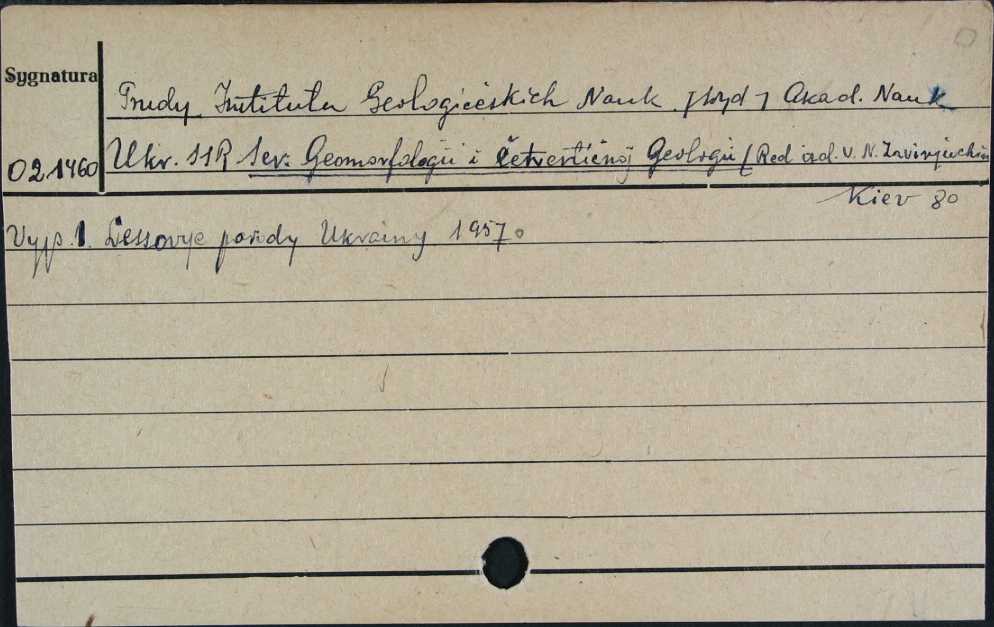 Sygnatura
Trudy Instituta Geologičeskich Nauk [Wyd] Akad. Nauk
02.1460 Ukr. SSR Ser. Geomorfologii i Četvertičnoj Geologii (Red. V. N.
Kiev 80
Vyp. 1. Lessovye porody Ukrainy 1957.